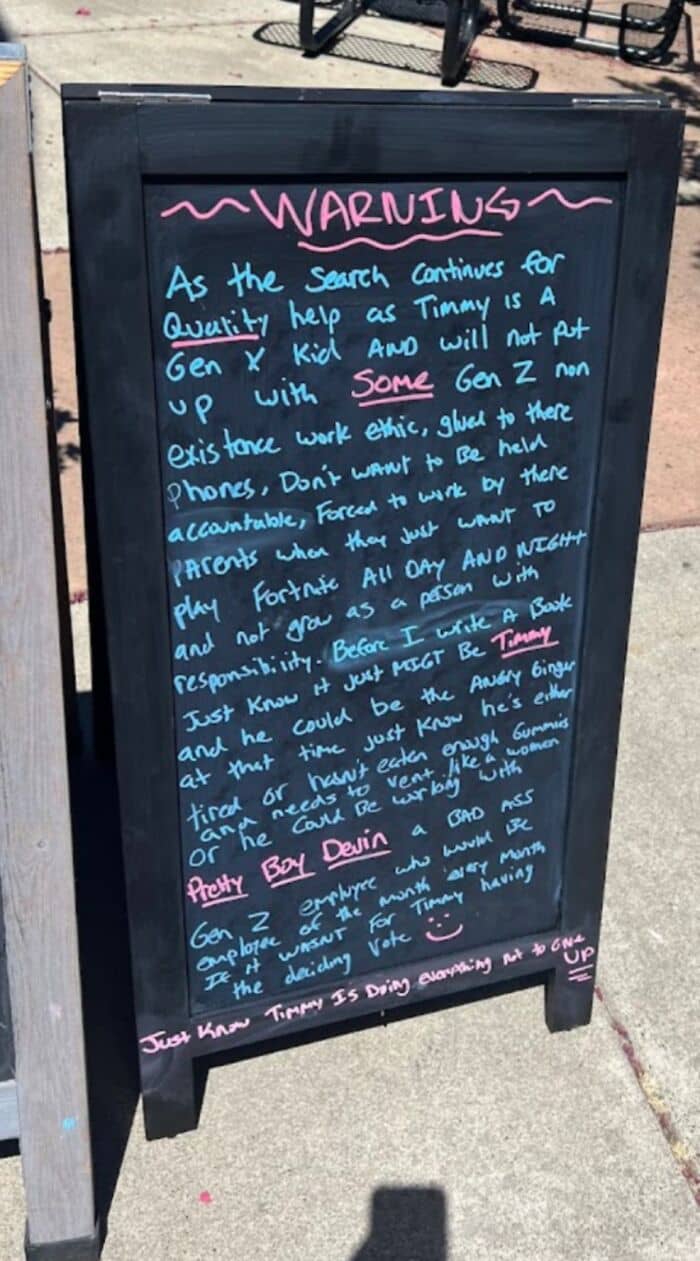 WARNING
As the search continues for
Quality help as Timmy is A
Gen X Kid AND will not put
up with Some Gen Z non
existance work ethic, glued to there
phones, Don't WANT to Be held
accountable, Forced to work by there
PArents when they just WANT TO
play Fortnite All DAY AND NIGHT
and not grow as a person with
responsibility. Before I write A Book
Just Know it just MIGT Be Timmy
and he could be the Angry Ginger
at that time just know he's either
tired or hasn't eaten enough Gummies
and needs to vent like a women
or he could Be working with
Pretty Boy Devin a BAD ASS
Gen Z employee who would Be
employee of the month every Month
If it WASNT For Timmy having
the deciding Vote
Just Know Timmy Is Doing everything not to Give UP